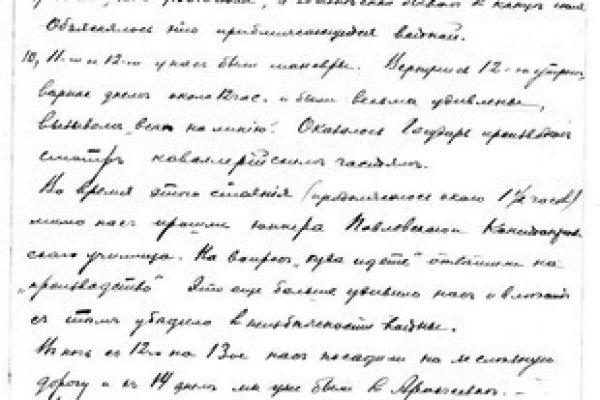 Объяснялось это приближающейся войной.
10, 11-го и 12-го у нас были маневры. Вернулись 12-го утром,
вернее днем около 12 час. и были весьма удивлены,
вызовом "всех на линию". Оказалось Государь производил
смотръ кавалерийскимъ частямъ.
Во время этого стояния (продолжалось около 1½ часов)
мимо насъ прошли юнкера Павловского
ского училища. На вопросъ "куда идете" ответили на
"производство" Это еще больше удивило насъ и
съ этимъ убедило в неизбежности войны.
Въ ночь съ 12го на 13ое насъ посадили на железную
дорогу и въ 14 днемъ мы уже были в